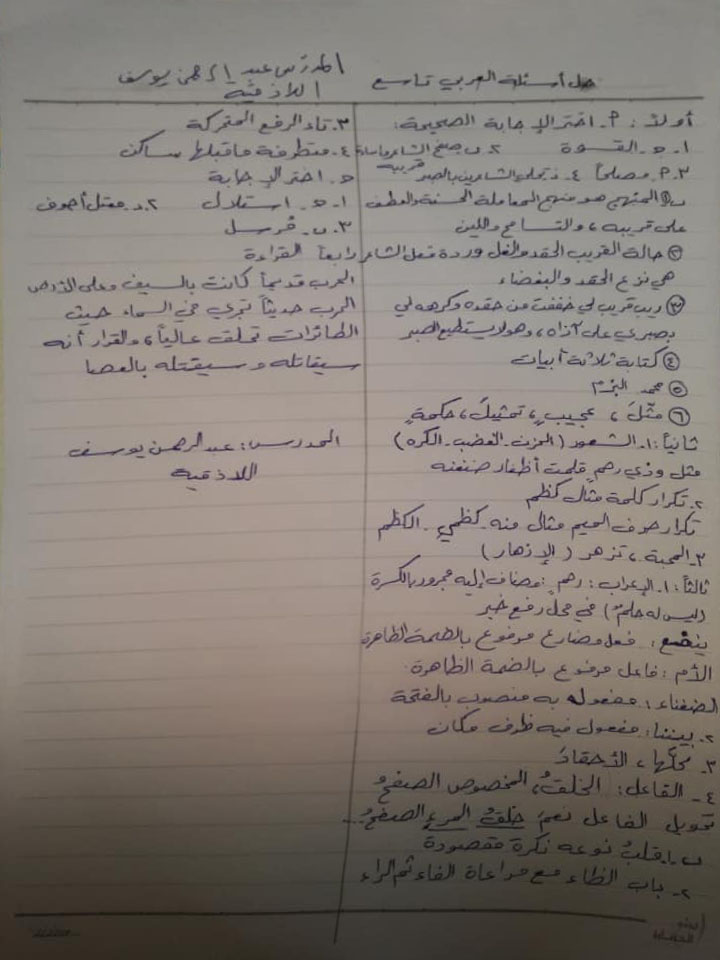 حل أسئلة العربي تاسع
المدرّس عبد الرحمن يوسف
اللاذقية
أولاً: ٩. اختر الإجابة الصحيحة:
١. ج. القسوة ٢. ب. صفح الشاعر
٣. ٩. مصلحاً ٤. د. تحلي الشاعر بالصبر
ب ① المنهج هو منهج المعاملة الحسنة والعطف
على قريبه، والتسامح واللين
② حالة القريب الحقد والغل وردة فعل الشاعر
هي نزع الحقد والبغضاء
③ ربّ قريب لي خففت من حقده وكرهه لي
بصبري على أذاه، وهو لا يستطيع الصبر
④ كتابة ثلاثة أبيات
⑤ محمد البزم
⑥ مثّلَ، عجيبٍ، تمثيلَ، حكمةٍ
ثانياً: ١. الشعور (الحزن - الغضب - الكره)
مثل وذي رحمٍ قلمت أظفار ضغنه
٢. تكرار كلمة مثال كظم
تكرار حرف الميم مثال منه. كظمي. الكظم
٣. المحبة، تزهر (الإزهار)
ثالثاً: ١. الإعراب: رحمٍ: مضاف إليه مجرور بالكسرة
(ليس له حلمٌ) في محل رفع خبر
فعل مضارع مرفوع بالضمة الظاهرة
الأم: فاعل مرفوع بالضمة الظاهرة
الضغناء: مفعول به منصوب بالفتحة
٢. بيننا: مفعول فيه ظرف مكان
٣. محلّها، الأحقادَ
٤. الفاعل: الخلقُ، المخصوص الصفحُ
تحويل الفاعل نعمَ خلقُ المرءِ الصفحُ...
ب. ١. قلبُ نوعه نكرة مقصودة
٢. باب الظاء مع مراعاة الفاء ثم الراء
٣. تاء الرفع المتحركة
٤. متطرفة ما قبلها ساكن
ج. اختر الإجابة
١. ج. استغلال ٢. د. معتل أجوف
٣. ب. مُرسل
رابعاً القراءة
الحرب قديماً كانت بالسيف وعلى الأرض
الحرب حديثاً تجري في السماء حيث
الطائرات تحلق عالياً، والقرار أنه
سيقاتله وسيقتله بالعصا
المدرس: عبد الرحمن يوسف
اللاذقية